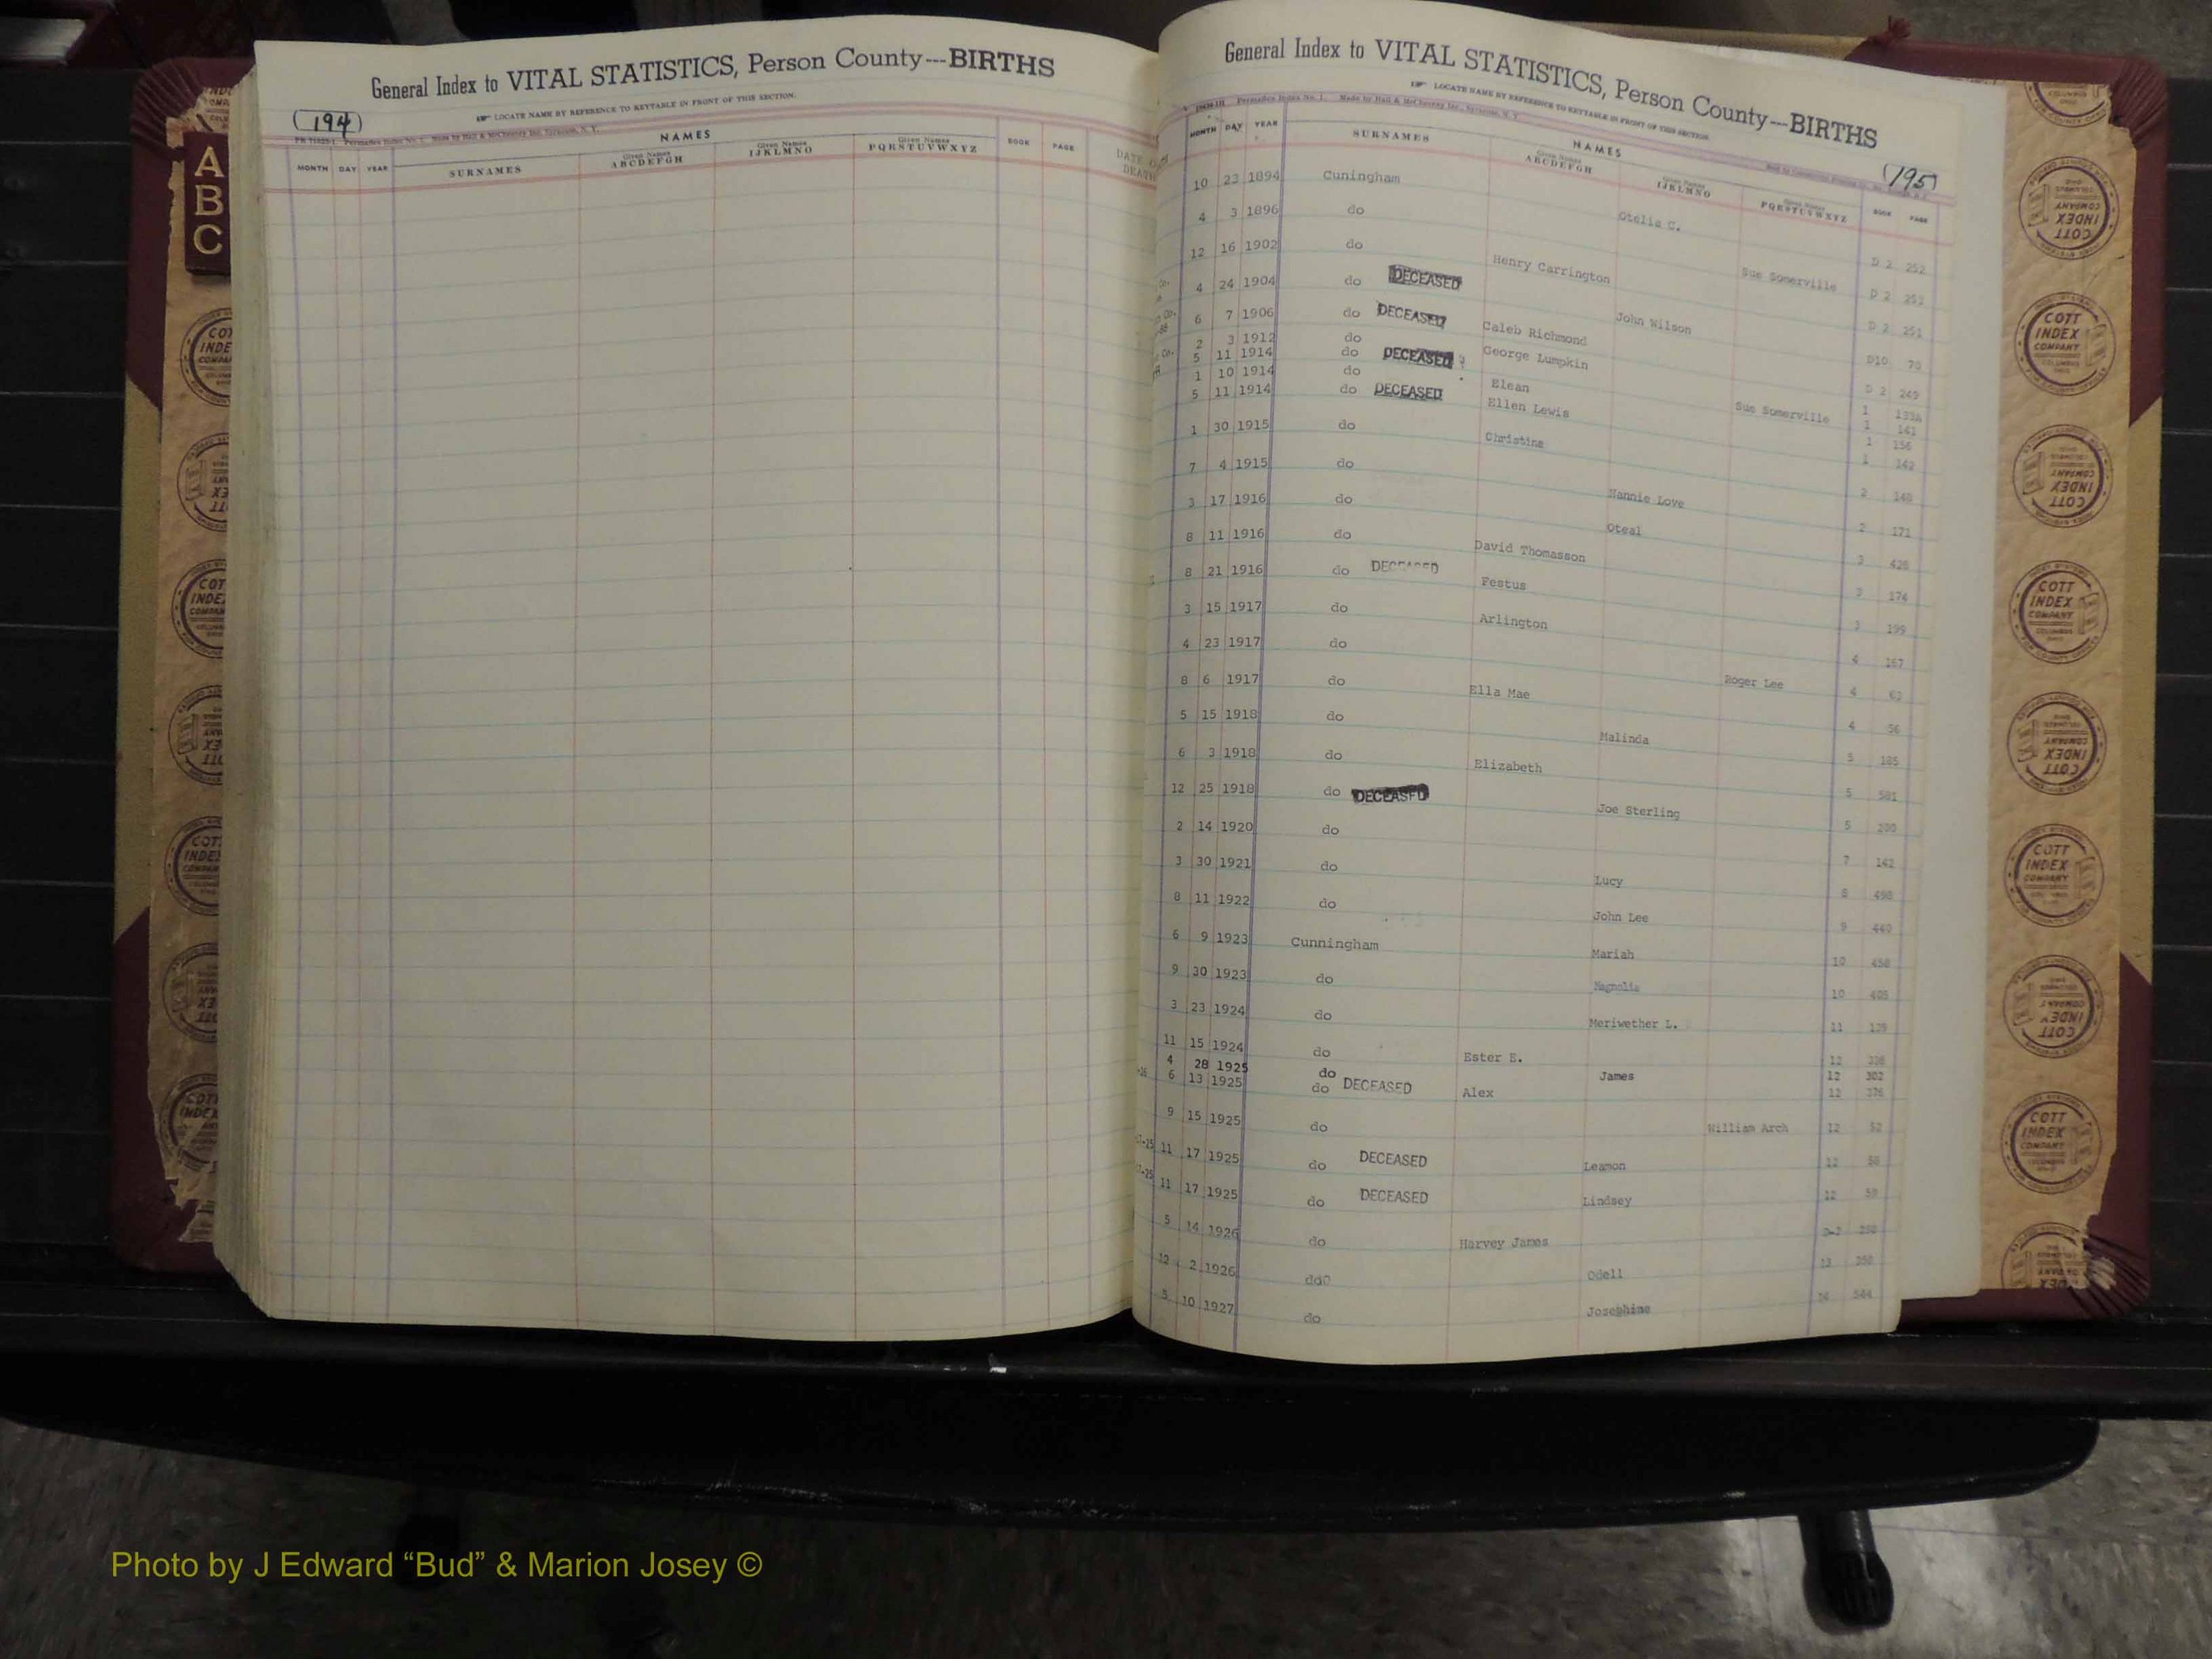 General Index to VITAL STATISTICS, Person County---BIRTHS
LOCATE NAME BY REFERENCE TO KEYTABLE IN FRONT OF THIS SECTION.
(194)
NAMES
MONTH DAY YEAR SURNAMES Given Names ABCDEFGH Given Names IJKLMNO Given Names PQRSTUVWXYZ BOOK PAGE
DATE OF DEATH
A
B
C
General Index to VITAL STATISTICS, Person County---BIRTHS
LOCATE NAME BY REFERENCE TO KEYTABLE IN FRONT OF THIS SECTION.
Made by Hall & McChesney Inc., Syracuse, N. Y.
(195)
NAMES
MONTH DAY YEAR SURNAMES Given Names ABCDEFGH Given Names IJKLMNO Given Names PQRSTUVWXYZ BOOK PAGE
10 23 1894 Cuningham Otelia C. D 2 252
4 3 1896 do Sue Somerville D 2 253
12 16 1902 do Henry Carrington D 2 251
4 24 1904 do DECEASED John Wilson D10 70
6 7 1906 do DECEASED Caleb Richmond D 2 249
2 3 1912 do George Lumpkin 1 133A
5 11 1914 do DECEASED Sue Somerville 1 143
1 10 1914 do Elean 1 156
5 11 1914 do DECEASED Ellen Lewis 1 142
1 30 1915 do Christine 2 148
7 4 1915 do Nannie Love 2 171
3 17 1916 do Oteal 3 428
8 11 1916 do David Thomasson 3 174
8 21 1916 do DECEASED Festus 3 199
3 15 1917 do Arlington 4 167
4 23 1917 do Roger Lee 4 63
8 6 1917 do Ella Mae 4 56
5 15 1918 do Malinda 5 185
6 3 1918 do Elizabeth 5 501
12 25 1918 do DECEASED Joe Sterling 5 200
2 14 1920 do 7 142
3 30 1921 do Lucy 8 498
8 11 1922 do John Lee 9 440
6 9 1923 Cunningham Mariah 10 458
9 30 1923 do Magnolia 10 405
3 23 1924 do Meriwether L. 11 129
11 15 1924 do Ester E. 12 338
4 28 1925 do James 12 302
6 13 1925 do DECEASED Alex 12 376
9 15 1925 do William Arch 12 52
11 17 1925 do DECEASED Leamon 12 58
11 17 1925 do DECEASED Lindsey 12 59
5 14 1926 do Harvey James D-2 250
12 2 1926 do Odell 13 350
5 10 1927 do Josephine 14 544
COTT INDEX COMPANY
Photo by J Edward “Bud” & Marion Josey ©